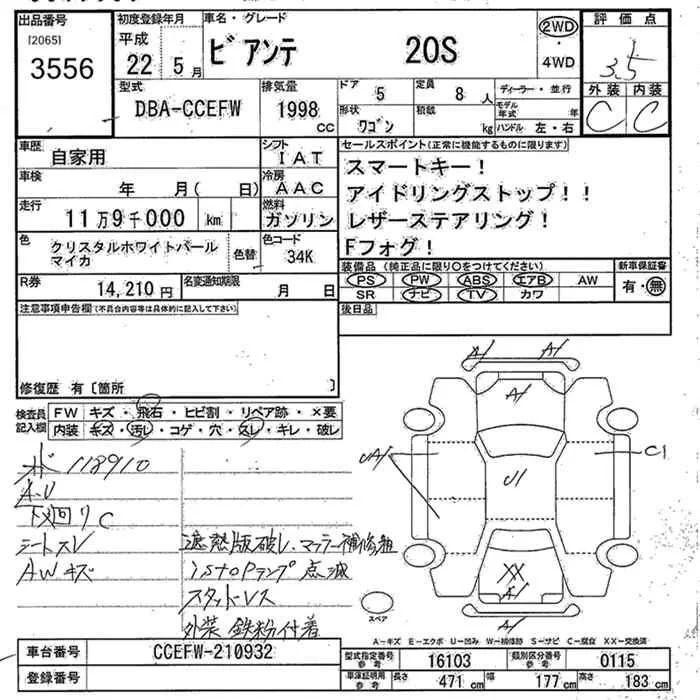 出品番号
[2065]
3556
初度登録年月
平成
22年 5月
車名・グレード
ビアンテ 20S
2WD
・
4WD
評価点
3.5
外装 内装
C C
型式
DBA-CCEFW
排気量
1998
CC
ドア 5
定員 8 人
形状 ワゴン
積載 kg
ディーラー・並行
モデル年式 年
ハンドル 左・右
車歴
自家用
シフト
IAT
車検
年 月(日)
冷房
AAC
走行
11万9千000 km
燃料
ガソリン
色
クリスタルホワイトパール
マイカ
色替
色コード
34K
R券
14,210円
名変通知期限
月 日
セールスポイント(正常に機能するものに限ります)
スマートキー!
アイドリングストップ!!
レザーステアリング!
Fフォグ!
装備品(純正品に限り○をつけてください)
PS PW ABS エアB AW
SR ナビ TV カワ
新車保証書
有・無
後日品
注意事項申告欄(不具合内容等は具体的に記入して下さい)
修復歴 有〔箇所 〕
検査員
記入欄
FW キズ・飛石・ヒビ割・リペア跡・×要
内装 キズ・汚し・コゲ・穴・スレ・キレ・破レ
118910
A-U
下廻りC
シートスレ
AWキズ
遮熱版破レ、マフラー補修箇
istopランプ点滅
スタッドレス
外装 鉄粉付着
A1 A1
A1
UA1
C1
U1
XX
A1
A1
スペア
A-キズ E-エクボ U-凹み W-補修跡 S-サビ C-腐食 XX-交換済
車台番号
CCEFW-210932
登録番号
型式指定番号
参考
16103
類別区分番号
参考
0115
車庫証明用
参考
長さ 471 cm 幅 177 cm 高さ 183 cm